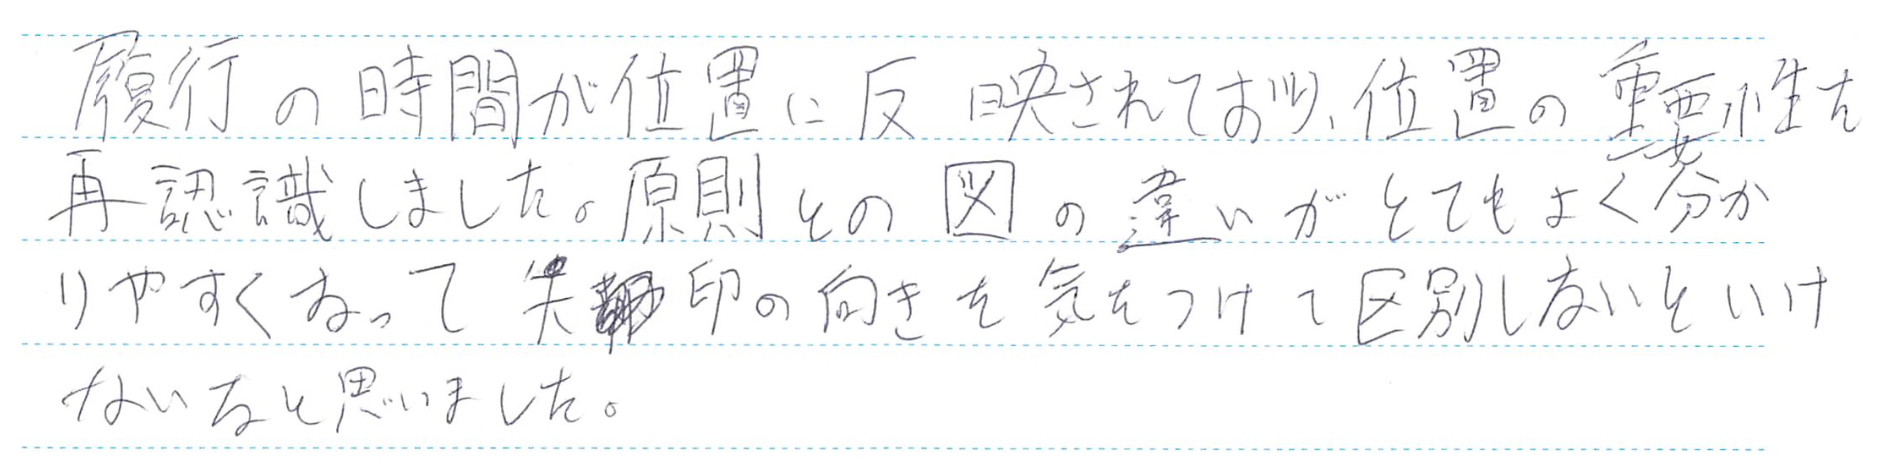 履行の時間が位置に反映されており、位置の重要性を
再認識しました。原則との図の違いがとてもよく分か
りやすくなって矢印の向きを気をつけて区別しないといけ
ないなと思いました。